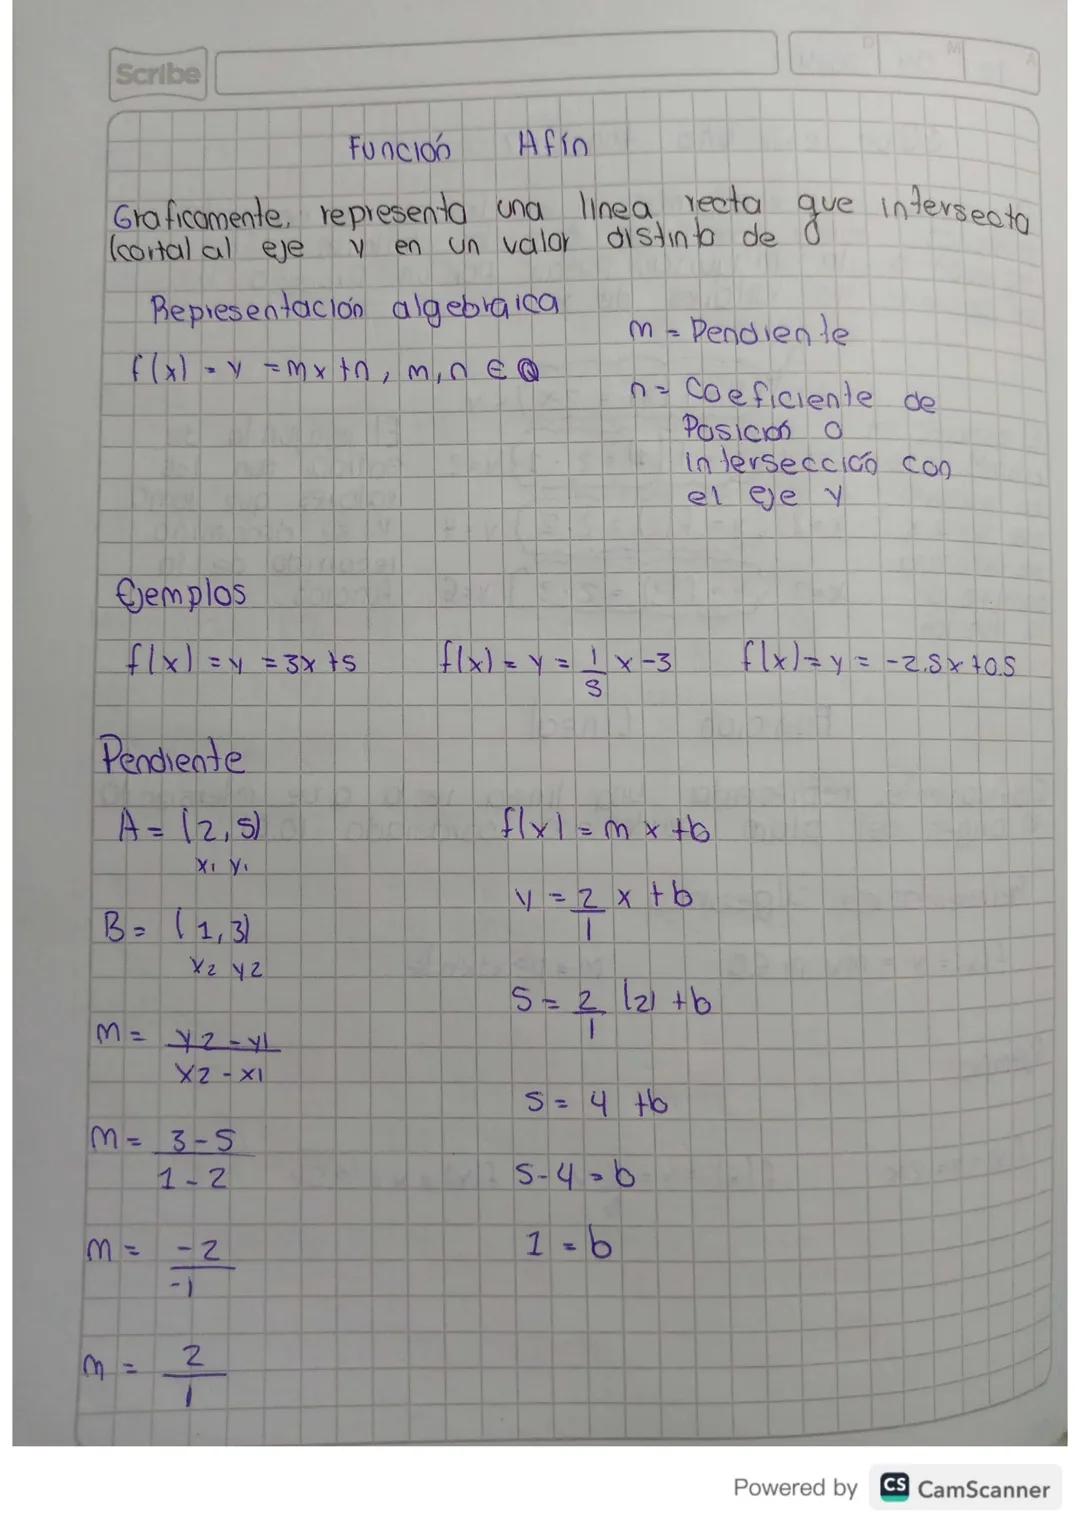 Scribe
D M A
Función Afín
Graficamente, representa una linea recta que intersecta
(corta) al eje y en un valor distinto de 0
Representación algebraica
f(x) = y = mx + n, m,n ∈ Q
m = Pendiente
n = Coeficiente de
Posición o
intersección con
el eje y
Ejemplos
f(x) = y = 3x + 5 f(x) = y = 1/5 x - 3 f(x) = y = -2.5x + 0.5
Pendiente
A = (2,5)
x1 y1
B = (1,3)
x2 y2
m = y2 - y1 / x2 - x1
m = 3 - 5 / 1 - 2
m = -2 / -1
m = 2 / 1
f(x) = mx + b
y = 2/1 x + b
5 = 2/1 (2) + b
5 = 4 + b
5 - 4 = b
1 = b
Powered by CS CamScanner